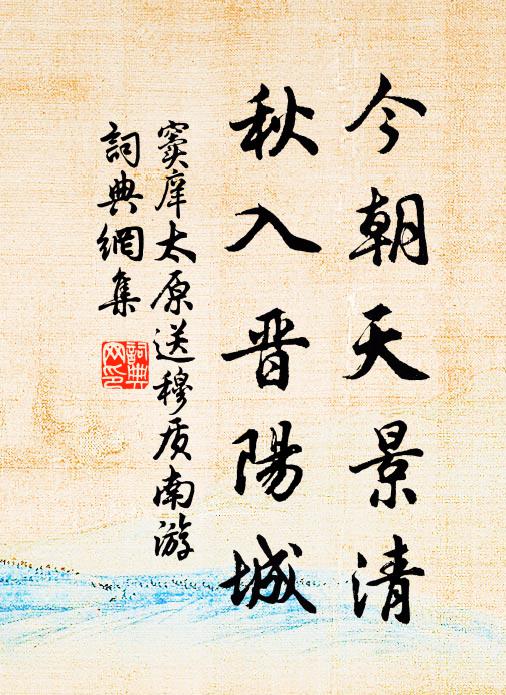 今朝天景清
秋入晋陽城
窦庠太原送穆质南游
詞典網集
詞典網印